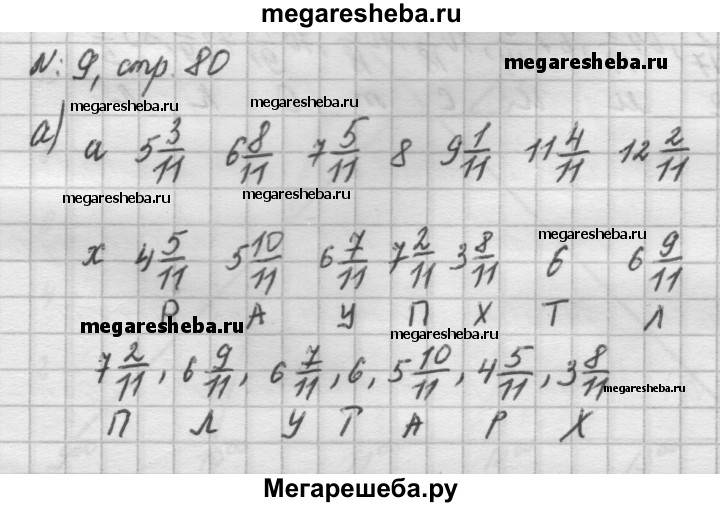 megaresheba.ru
№: 9, стр. 80
megaresheba.ru
megaresheba.ru megaresheba.ru
а) a 5 3/11 6 8/11 7 5/11 8 9 1/11 11 4/11 12 2/11
megaresheba.ru megaresheba.ru
megaresheba.ru
x 4 5/11 5 10/11 6 7/11 7 2/11 3 8/11 6 6 9/11
Р А У П Х Т Л
megaresheba.ru megaresheba.ru
7 2/11, 6 9/11, 6 7/11, 6, 5 10/11, 4 5/11, 3 8/11
megaresheba.ru
П Л У Т А Р Х
Мегарешеба.ру